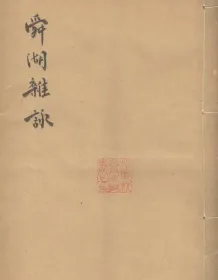 舜湖雜詠